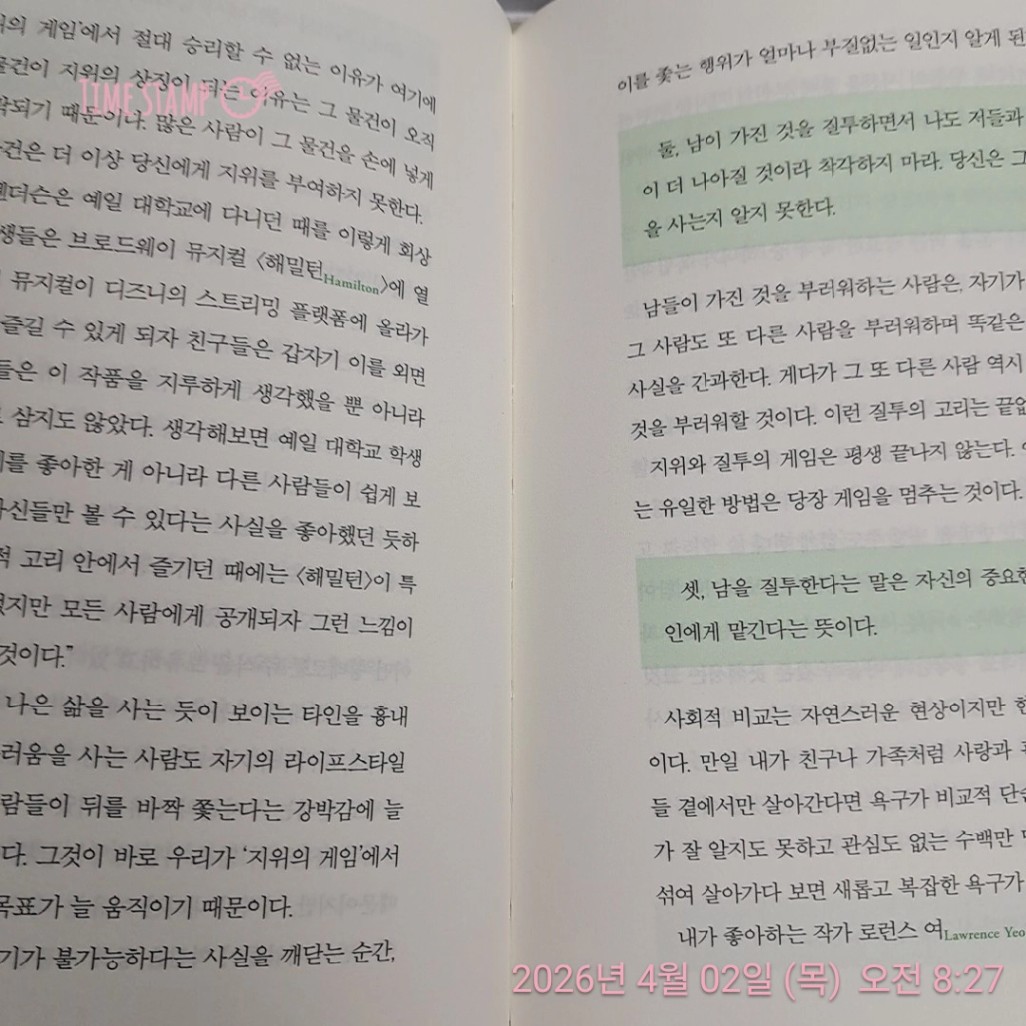 의 게임'에서 절대 승리할 수 없는 이유가 여기에
물건이 지위의 상징이 되는 이유는 그 물건이 오직
되기 때문이다. 많은 사람이 그 물건을 손에 넣게
건은 더 이상 당신에게 지위를 부여하지 못한다.
헨더슨은 예일 대학교에 다니던 때를 이렇게 회상
생들은 브로드웨이 뮤지컬 〈해밀턴Hamilton〉에 열
뮤지컬이 디즈니의 스트리밍 플랫폼에 올라가
즐길 수 있게 되자 친구들은 갑자기 이를 외면
들은 이 작품을 지루하게 생각했을 뿐 아니라
삼지도 않았다. 생각해보면 예일 대학교 학생
를 좋아한 게 아니라 다른 사람들이 쉽게 보
자신들만 볼 수 있다는 사실을 좋아했던 듯하
적 고리 안에서 즐기던 때에는 〈해밀턴〉이 특
지만 모든 사람에게 공개되자 그런 느낌이
것이다."
나은 삶을 사는 듯이 보이는 타인을 흉내
러움을 사는 사람도 자기의 라이프스타일
람들이 뒤를 바짝 쫓는다는 강박감에 늘
다. 그것이 바로 우리가 '지위의 게임'에서
목표가 늘 움직이기 때문이다.
기가 불가능하다는 사실을 깨닫는 순간,
이를 좇는 행위가 얼마나 부질없는 일인지 알게 된
둘, 남이 가진 것을 질투하면서 나도 저들과
이 더 나아질 것이라 착각하지 마라. 당신은 그
을 사는지 알지 못한다.
남들이 가진 것을 부러워하는 사람은, 자기가
그 사람도 또 다른 사람을 부러워하며 똑같은
사실을 간과한다. 게다가 그 또 다른 사람 역시
것을 부러워할 것이다. 이런 질투의 고리는 끝없
지위와 질투의 게임은 평생 끝나지 않는다.
는 유일한 방법은 당장 게임을 멈추는 것이다.
셋, 남을 질투한다는 말은 자신의 중요한
인에게 맡긴다는 뜻이다.
사회적 비교는 자연스러운 현상이지만
이다. 만일 내가 친구나 가족처럼 사랑과
들 곁에서만 살아간다면 욕구가 비교적 단순
가 잘 알지도 못하고 관심도 없는 수백만
섞여 살아가다 보면 새롭고 복잡한 욕구가
내가 좋아하는 작가 로런스 여Lawrence Yeo
TIME STAMP
2026년 4월 02일 (목) 오전 8:27